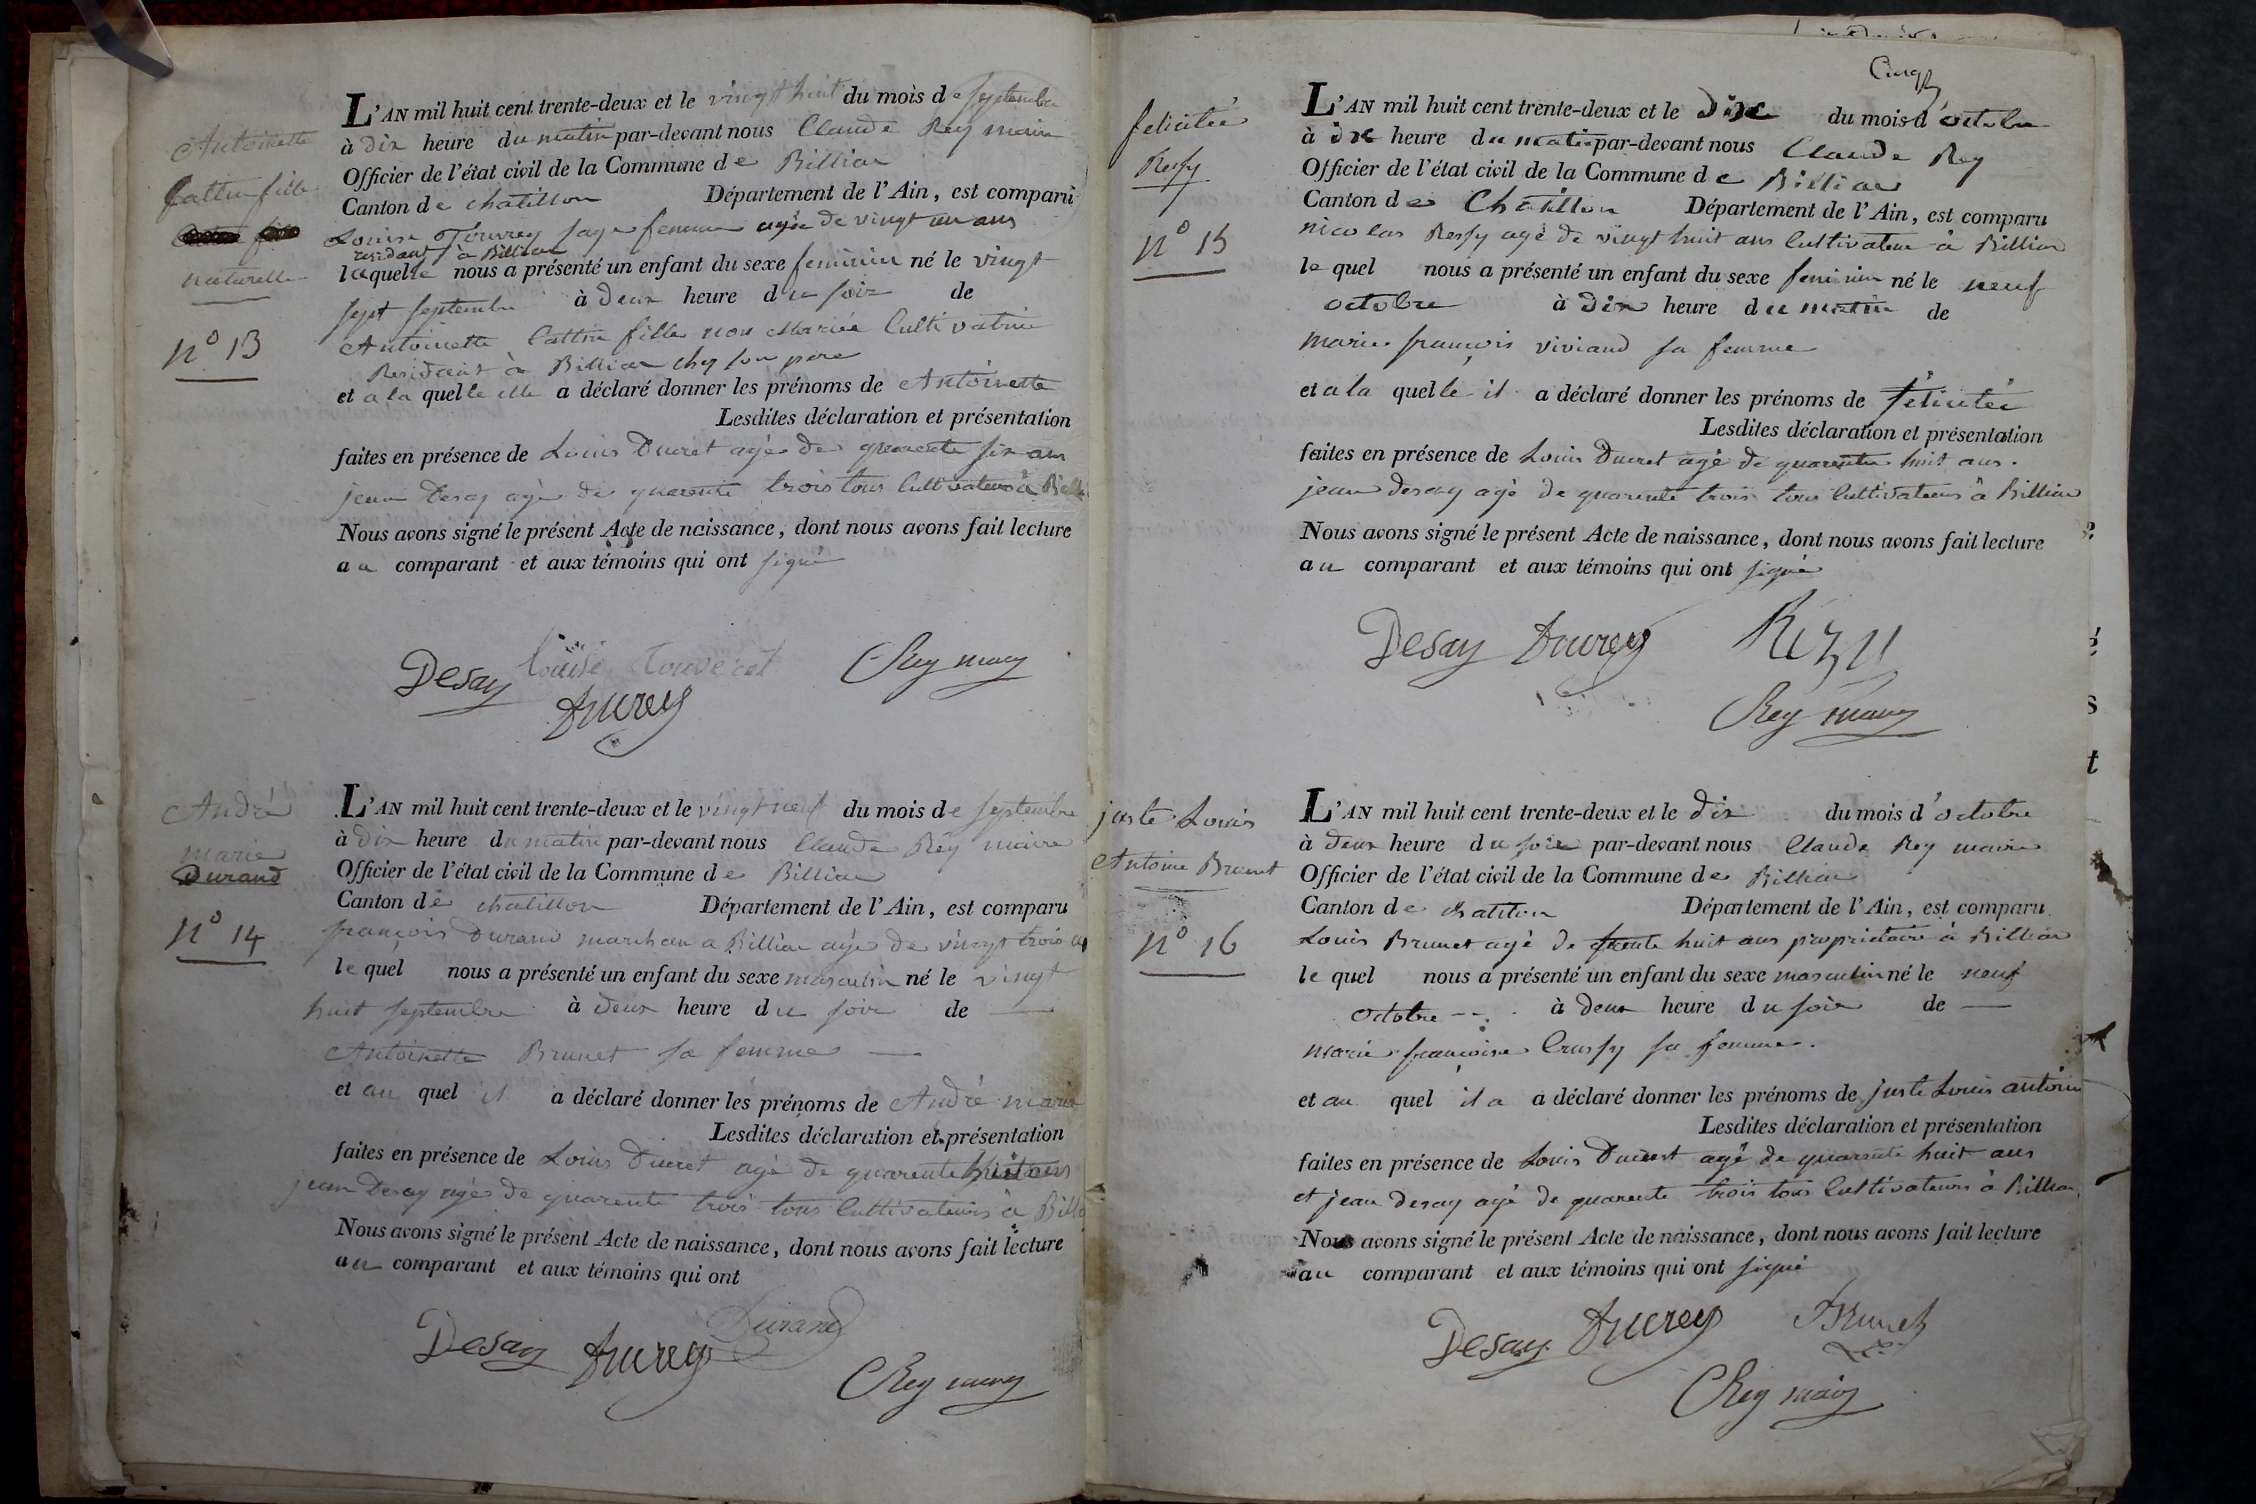 Antoinette
fille
naturelle
n° 13
L'AN mil huit cent trente-deux et le vingt huit du mois de septembre
à dix heure du matin par-devant nous Claude Rey maire
Officier de l'état civil de la Commune de Billiat
Canton de chatillon Département de l'Ain, est comparu
Louise sage femme agée de vingt un ans
residant à Billiat
laquelle nous a présenté un enfant du sexe feminin né le vingt
sept septembre à deux heure du soir de
Antoinette fille non Mariée Cultivatrice
Residant à Billiat chez son pere
et a la quelle elle a déclaré donner les prénoms de Antoinette
Lesdites déclaration et présentation
faites en présence de Louis Ducret agé de quarente six ans
jean Desay agé de quarente trois tous Cultivateurs à
Nous avons signé le présent Acte de naissance, dont nous avons fait lecture
au comparant et aux témoins qui ont signé
Desay Louise CRey
Ducrey
André
marie
Durand
n° 14
L'AN mil huit cent trente-deux et le vingt neuf du mois de septembre
à dix heure du matin par-devant nous Claude Rey maire
Officier de l'état civil de la Commune de Billiat
Canton de chatillon Département de l'Ain, est comparu
françois Durand a Billiat agé de vingt trois
le quel nous a présenté un enfant du sexe masculin né le vingt
huit septembre à deux heure du soir de
Antoinette Brunet sa femme
et au quel il a déclaré donner les prénoms de André marie
Lesdites déclaration et présentation
faites en présence de Louis Ducret agé de quarente huit ans
jean Desay agé de quarente trois tous Cultivateurs à
Nous avons signé le présent Acte de naissance, dont nous avons fait lecture
au comparant et aux témoins qui ont
Durand
Desay Ducrey CRey
Cinq
felicitée
Ressy
n° 15
L'AN mil huit cent trente-deux et le dix du mois d'octobre
à dix heure du matin par-devant nous Claude Rey
Officier de l'état civil de la Commune de Billiat
Canton de Chatillon Département de l'Ain, est comparu
nicolas Ressy agé de vingt huit ans Cultivateur à Billiat
le quel nous a présenté un enfant du sexe feminin né le neuf
octobre à dix heure du matin de
marie françois viviand sa femme
et a la quelle il a déclaré donner les prénoms de félicitée
Lesdites déclaration et présentation
faites en présence de Louis Ducret agé de quarente huit ans.
jean desay agé de quarente trois tous Cultivateurs à Billiat
Nous avons signé le présent Acte de naissance, dont nous avons fait lecture
au comparant et aux témoins qui ont signé
Desay Ducrey
CRey
juste Louis
Antoine Brunet
n° 16
L'AN mil huit cent trente-deux et le dix du mois d'octobre
à deux heure du soir par-devant nous Claude Rey maire
Officier de l'état civil de la Commune de Billiat
Canton de chatillon Département de l'Ain, est comparu
Louis Brunet agé de trente huit ans proprietaire à Billiat
le quel nous a présenté un enfant du sexe masculin né le neuf
octobre à deux heure du soir de
marie françoise sa femme.
et au quel il a a déclaré donner les prénoms de juste Louis antoine
Lesdites déclaration et présentation
faites en présence de Louis Ducret agé de quarente huit ans
et jean desay agé de quarente trois tous Cultivateurs à Billiat
Nous avons signé le présent Acte de naissance, dont nous avons fait lecture
au comparant et aux témoins qui ont signé
Desay Ducrey Brunet
CRey